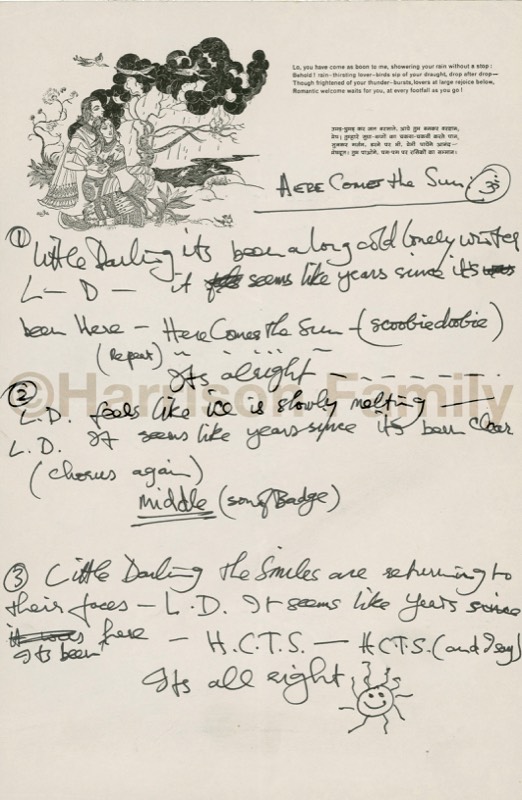 Lo, you have come as boon to me, showering your rain without a stop :
Behold ! rain-thirsting lover-birds sip of your draught, drop after drop—
Though frightened of your thunder-bursts, lovers at large rejoice below,
Romantic welcome waits for you, at every footfall as you go !
उमड़-घुमड़ कर जल बरसाते, आये तुम बनकर वरदान,
मेघदूत ! तुम पाओगे, पग-पग पर रसिकों का सम्मान।
HERE COMES the SUN. ॐ
① Little Darling its been a long cold lonely winter
L — D — it seems like years since its
been Here — Here Comes the Sun — (scoobiedoobie)
(Repeat)
Its alright — — — — — —
②
L.D. feels like ice is slowly melting —
L.D. It seems like years since its been clear
(chorus again)
middle (son of Badge)
③ Little Darling the Smiles are returning to
their faces — L.D. It seems like years since
it was here — H.C.T.S. — H.C.T.S. (and I say)
Its been
Its all right
©Harrison Family